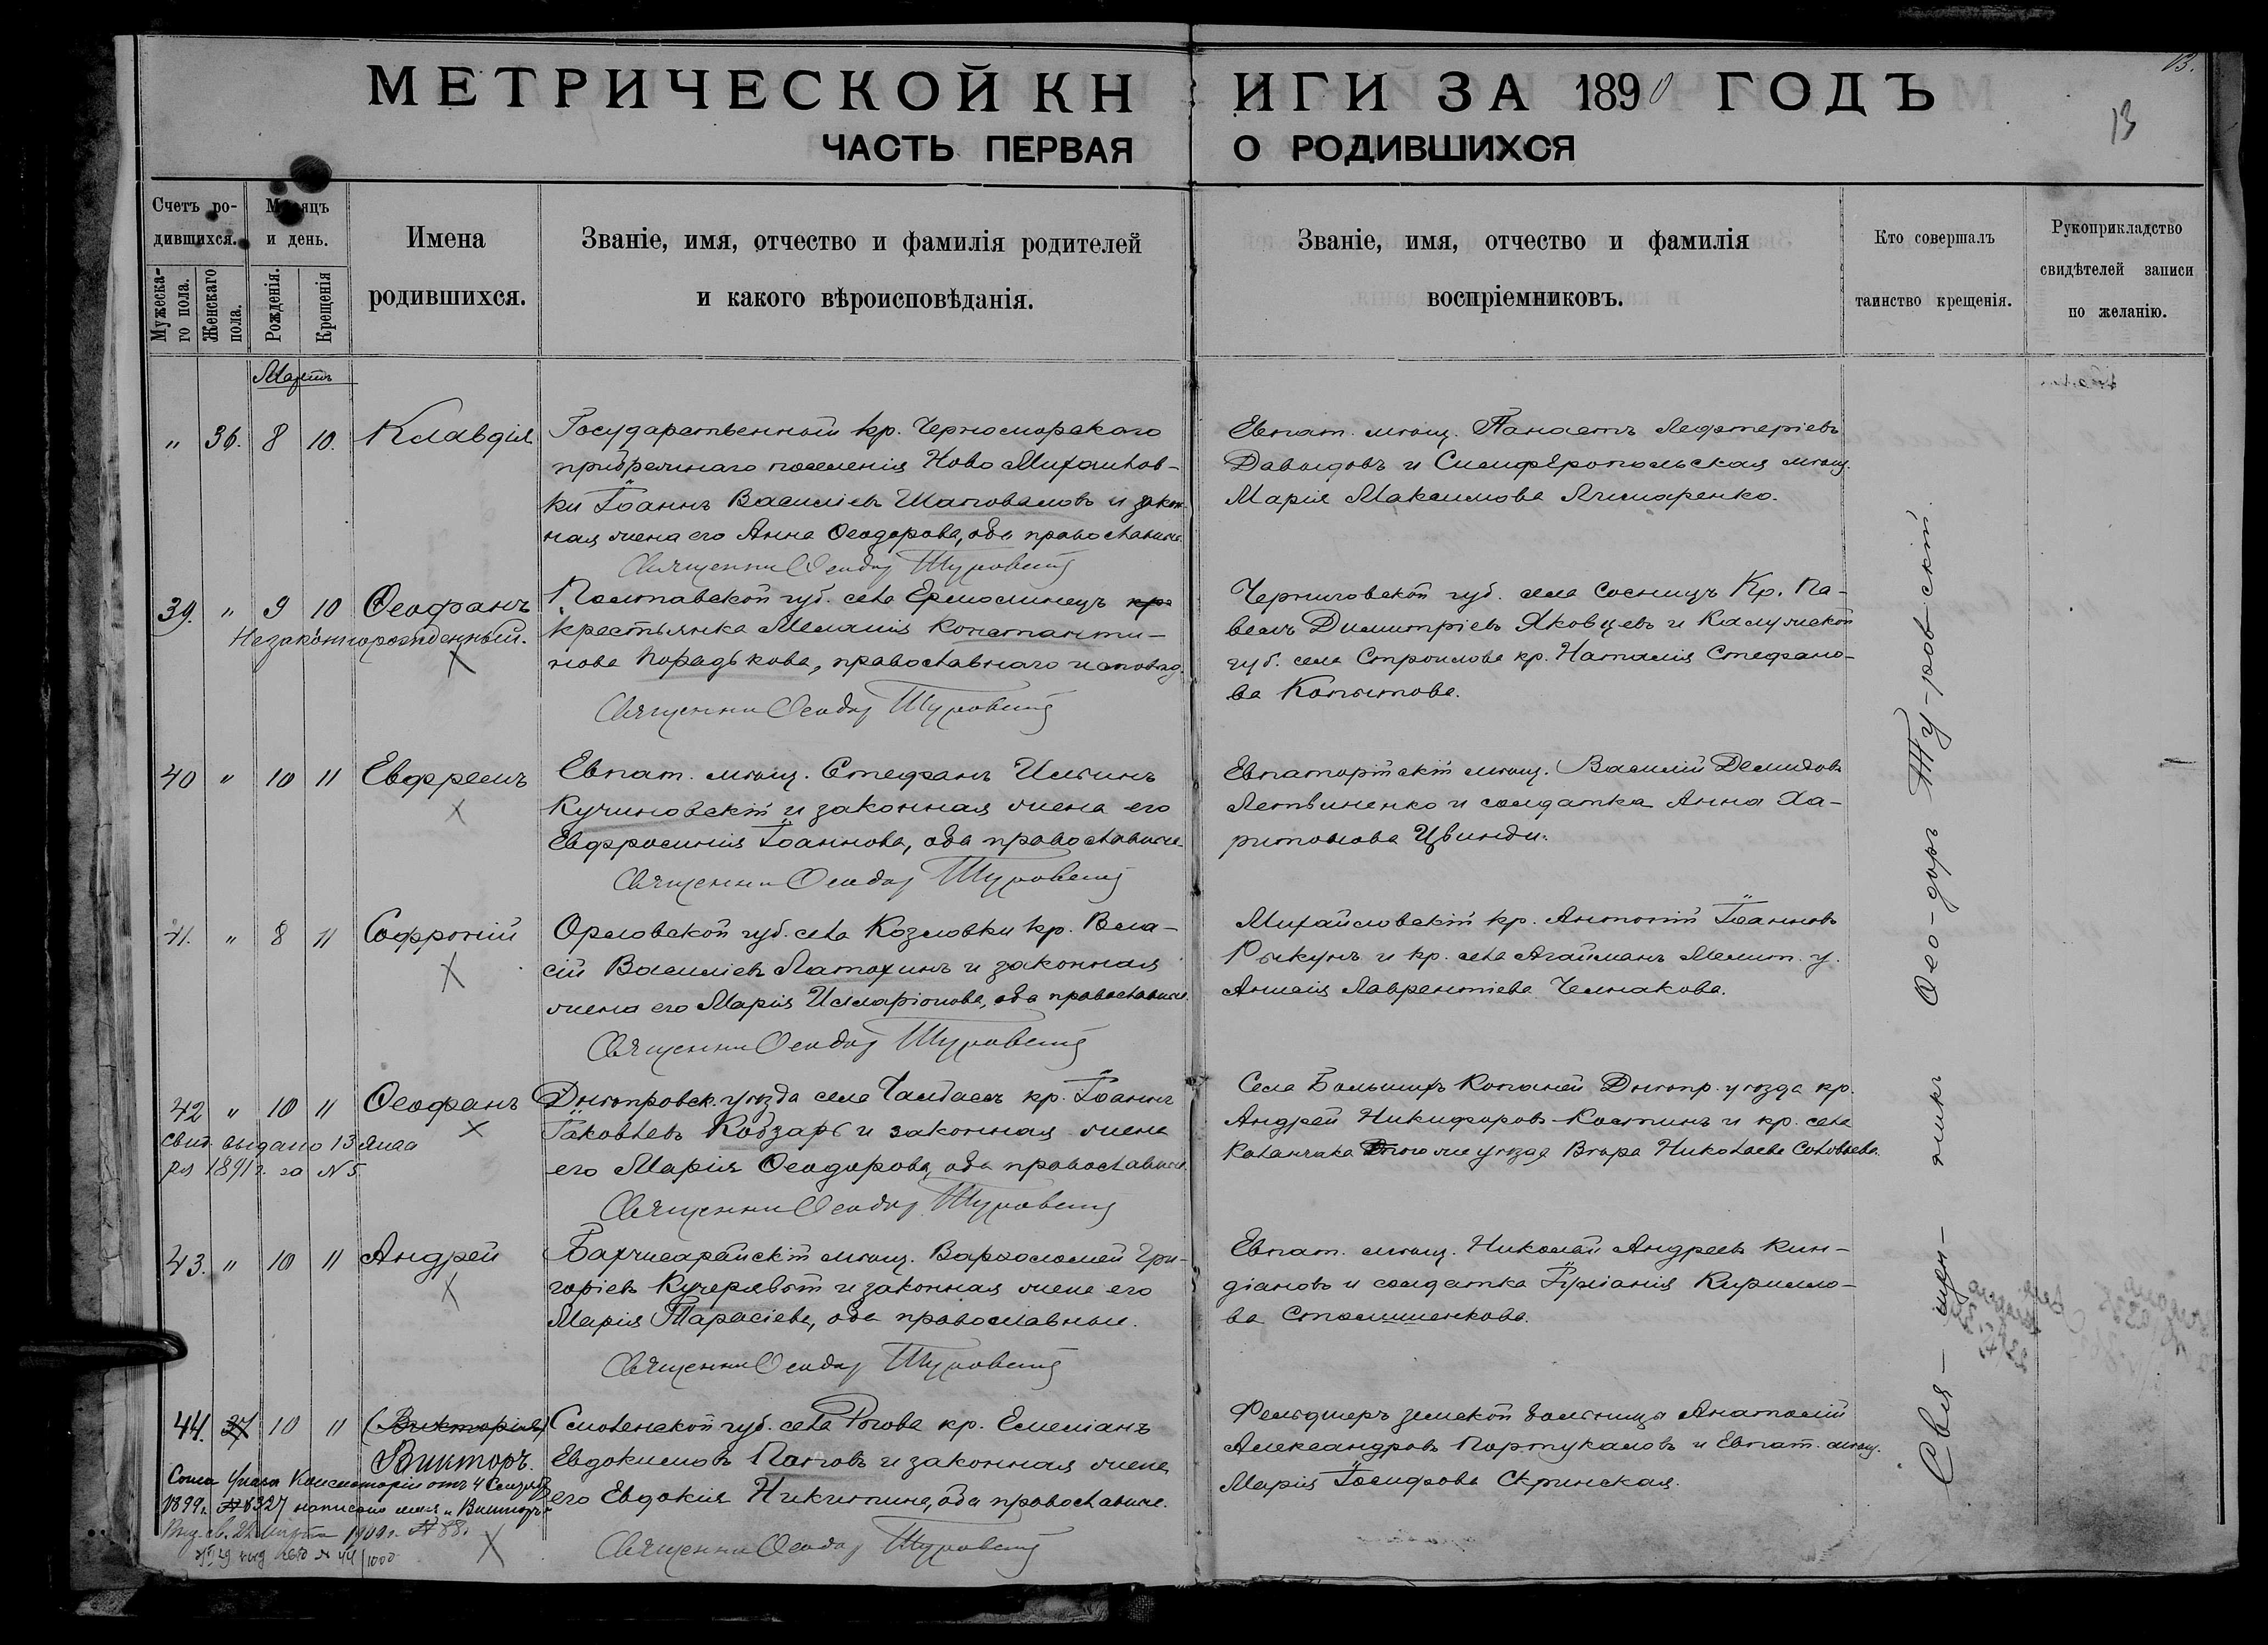 МЕТРИЧЕСКОЙ КНИГИ ЗА 1890 ГОДЪ
13.
13
ЧАСТЬ ПЕРВАЯ О РОДИВШИХСЯ
Счетъ ро-
дившихся.
Мѣсяцъ
и день.
Мужеска-
го пола.
Женскаго
пола.
Рожденія.
Крещенія
Имена
родившихся.
Званіе, имя, отчество и фамилія родителей
и какого вѣроисповѣданія.
Званіе, имя, отчество и фамилія
воспріемниковъ.
Кто совершалъ
таинство крещенія.
Рукоприкладство
свидѣтелей записи
по желанію.
Мартъ
" 36. 8 10. Клавдія
Государственный кр. Черноморскаго
прибрежнаго поселенія Ново Михайлов-
ки Іоаннъ Василіевъ Шаповаловъ и закон-
ная жена его Анна Ѳеодорова, оба православные
Священник Ѳеодор Туровский
Евпат. мѣщ. Панаетъ Лефтеріевъ
Давыдовъ и Симферопольская мѣщ.
Марія Максимова
39. " 9 10 Ѳеофанъ
Незаконнорожденный.
Полтавской губ. села кр
крестьянка Меланія Константи-
нова Порадькова, православнаго исповѣд.
Священник Ѳеодор Туровский
Черниговской губ. села Сосницъ Кр. Па-
велъ Димитріевъ Яковцевъ и Калужской
губ. села кр. Наталія Стефано-
ва Копытова.
40 " 10 11 Евфремъ
Евпат. мѣщ. Стефанъ Илиинъ
Кучиновскій и законная жена его
Евфросинія Іоаннова, оба православные
Священник Ѳеодор Туровский
Евпаторійскій мѣщ. Василій Демидовъ
Летвиненко и солдатка Анна Ха-
ритонова Цвинди.
41. " 8 11 Софроній
Орловской губ. села Козловки кр. Вла-
сій Василіевъ Латохинъ и законная
жена его Марія Илларіонова, оба православные
Священник Ѳеодор Туровский
Михайловскій кр. Антоній Іоанновъ
Рыкунъ и кр. села Агайманъ Мелит. у.
Лаврентіева Челнакова.
42 " 10 11 Ѳеофанъ
свид. выдано 13 Янва
ря 1891 г. за № 5
Днѣпровск. уѣзда села Чалбасъ кр. Іоаннъ
Іаковлевъ Кобзарь и законная жена
его Марія Ѳеодорова, оба православные
Священник Ѳеодор Туровский
Села Большихъ Копаней Днѣпр. уѣзда кр.
Андрей Никифоровъ Костинъ и кр. села
Каланчака того же уѣзда Вѣра Николаева Соловьева.
43. " 10 11 Андрей
Бахчисарайскій мѣщ. Варѳоломей Гри-
горіевъ Кучерявый и законная жена его
Марія Тарасіева, оба православные.
Священник Ѳеодор Туровский
Евпат. мѣщ. Николай Андреевъ Кин-
діановъ и солдатка Кирилло-
ва
44. 37 10 11 (Викторія)
Викторъ.
Соглас. Указа Консисторіи отъ 4 Сентяб.
1899 г. № 8327 написано имя "Викторъ"
Выд. св. 22 Марта 1909 г. № 88.
Смоленской губ. села Рогова кр. Емеліанъ
Евдокимовъ Поповъ и законная жена
его Евдокія Никитина, оба православные.
Священник Ѳеодор Туровский
Фельдшеръ земской больницы Анатолій
Александровъ Портукаловъ и Евпат. мѣщ.
Марія Іосифова Скринская.
Свя-щен-никъ Ѳео-доръ Ту-ров-скій.